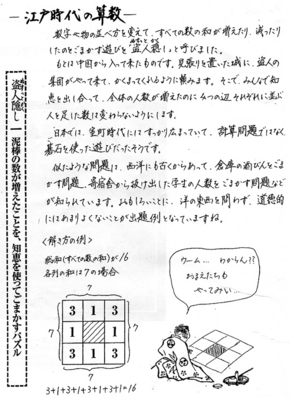 ―江戸時代の算数―
数字や物の並べ方を変えて、すべての数の和が増えたり、減ったり
したのをごまかす遊びを「盗人隠し」と呼びました。
もとは中国から入って来たものです。見張りを置いた城に、盗人の
集団がやって来て、かくまってくれるように頼みます。そこで、みんなで知
恵を出し合って、全体の人数が増えたのに4つの辺それぞれに並ぶ
人を足した数は変わらないようにします。
日本では、室町時代にはすっかり広まっていて、計算問題ではなく
碁石を使った遊びだったそうです。
似たような問題は、西洋にも古くからあって、倉庫の酒びんをごま
かす問題、寄宿舎から抜け出した学生の人数をごまかす問題など
が知られています。おもしろいことに、洋の東西を問わず、道徳的
にはあまりよくないことが出題例となっていますね。
盗人隠し―泥棒の数が増えたことを、知恵を使ってごまかすパズル
<解き方の例>
総和(すべての数の和)が16
各列の和は7の場合
7
3 1 3
7 1 1 7
3 1 3
7
3+1+3+1+3+1+3+1=16
ウーム… わからん??
おまえたちも
やってみい…